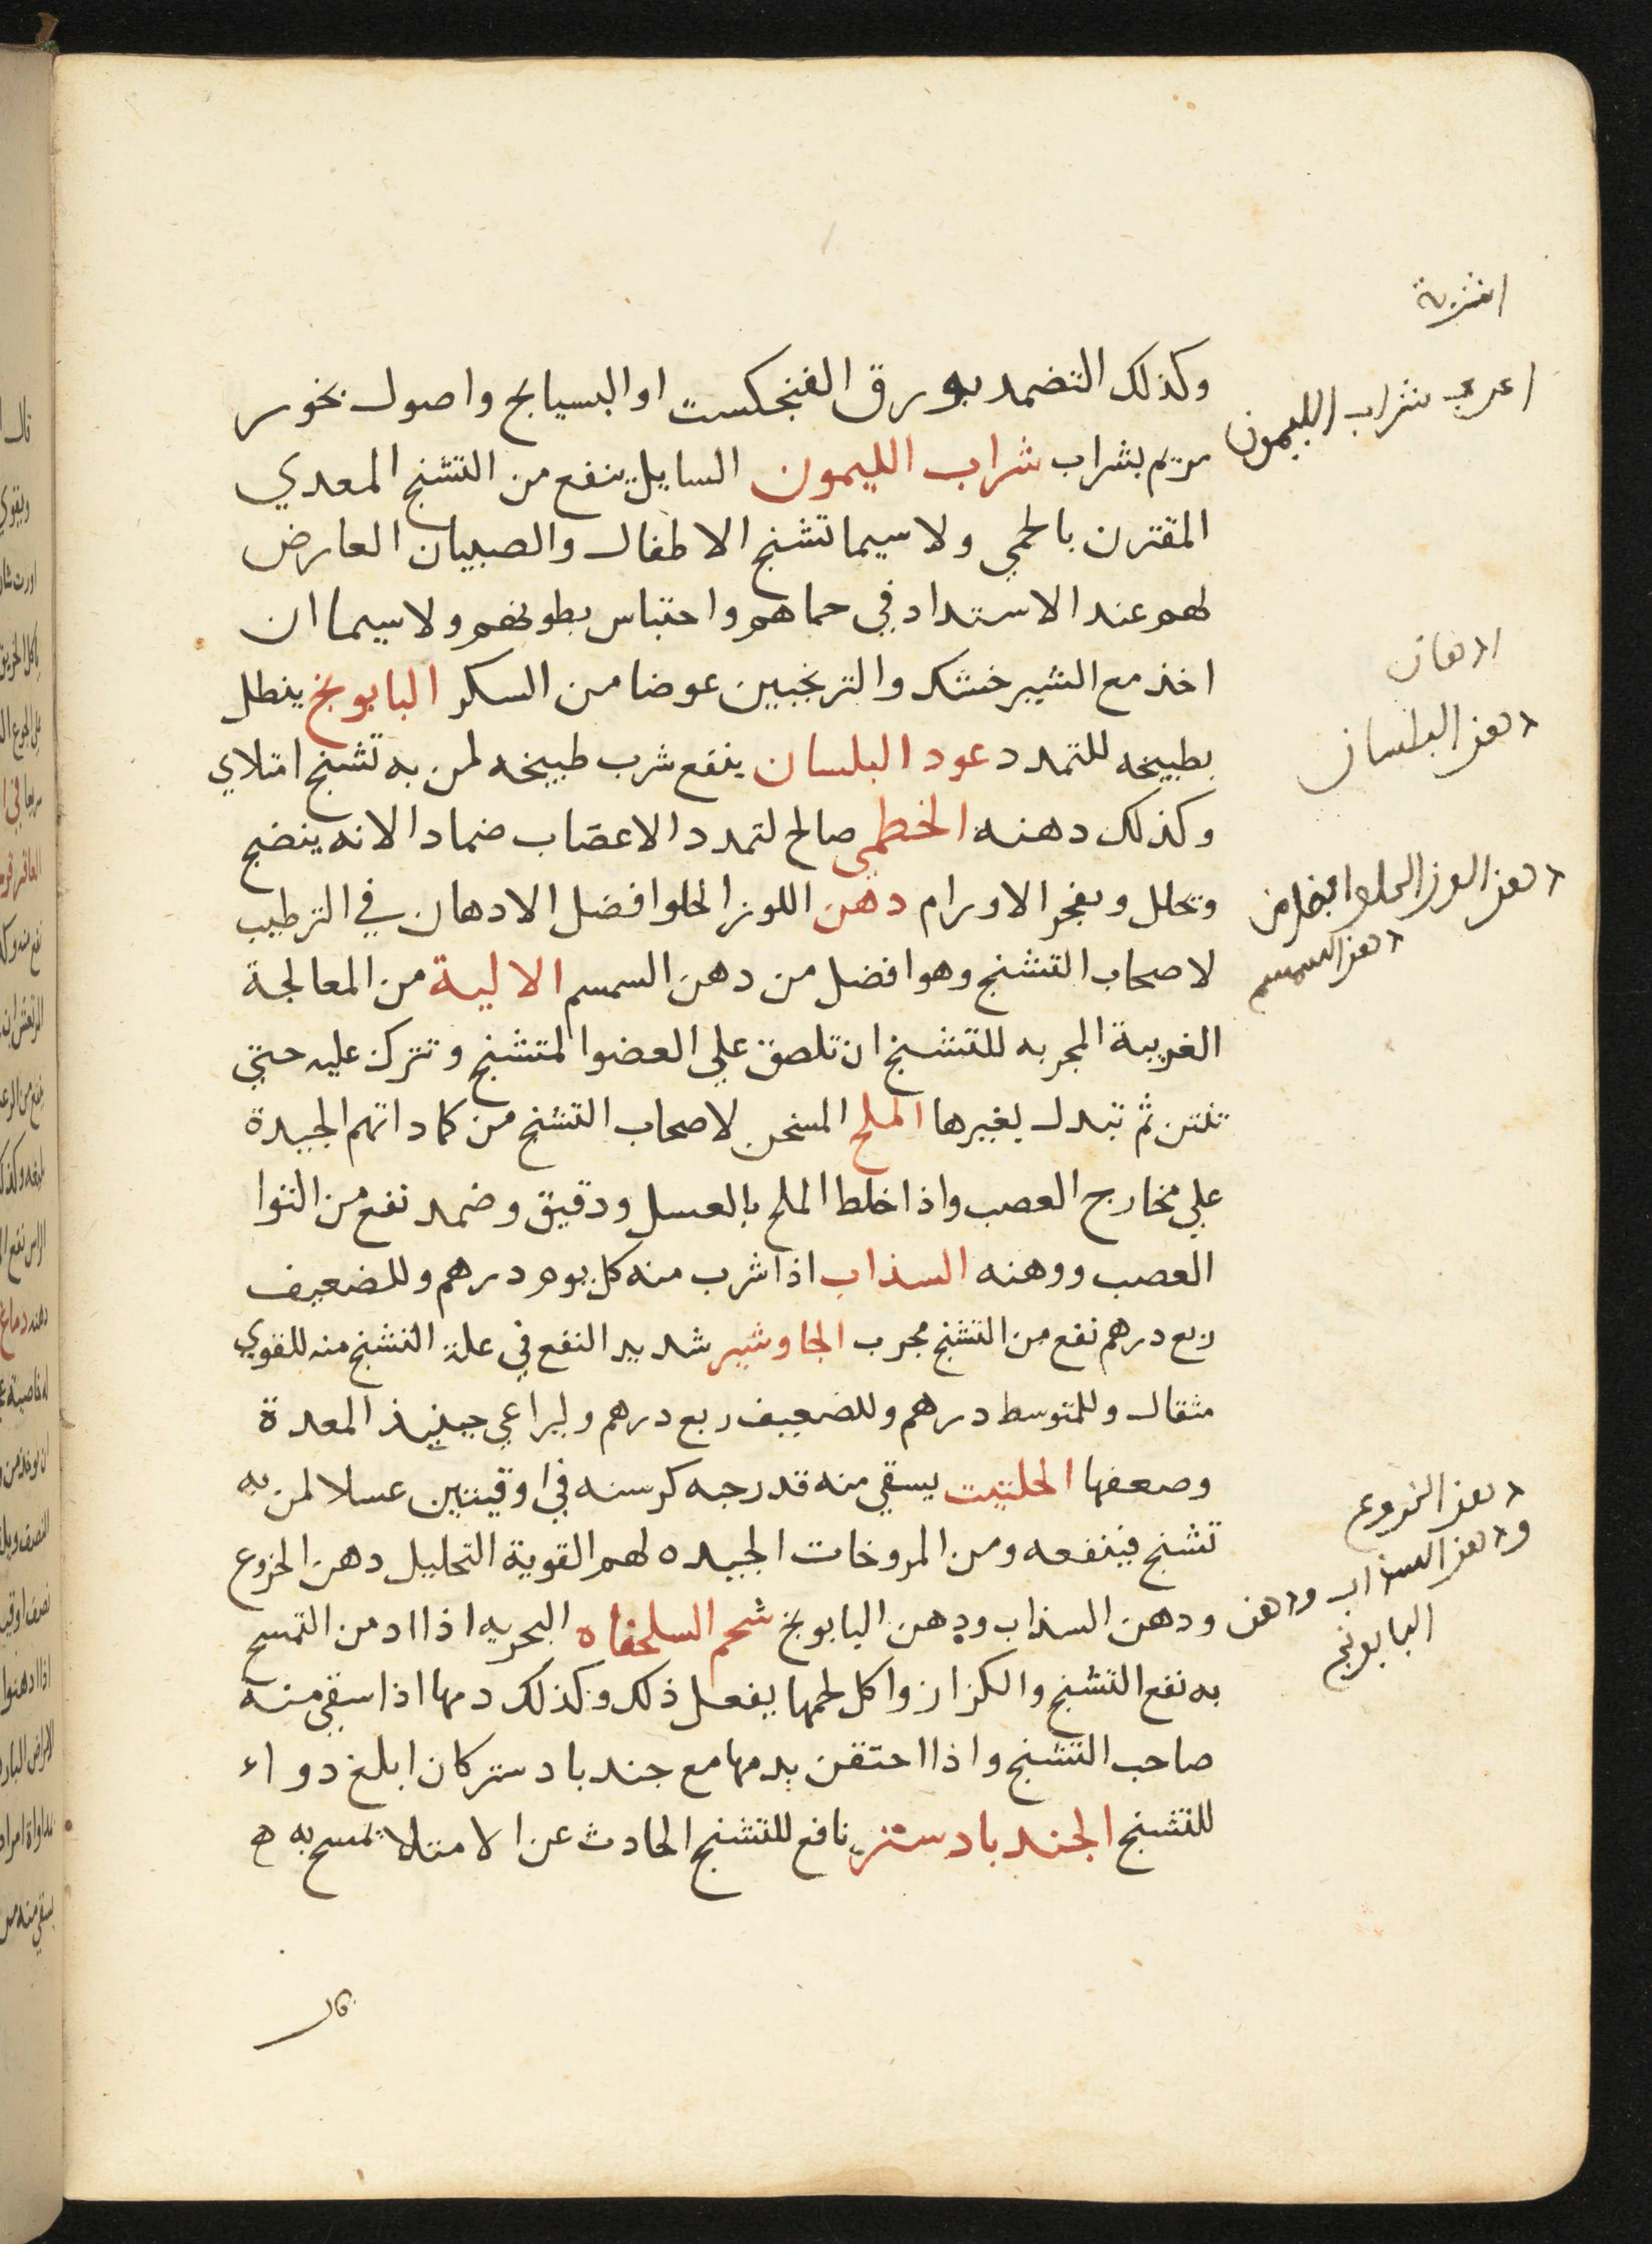 اشربة
وكذلك التضمد بورق الفنجكست او البسيابج واصول بخور
اعرى شراب الليمون
مريم بشراب شراب الليمون السايل ينفع من التشنج المعدي
المقترن بالحمي ولا سيما تشنج الاطفال والصبيان العارض
لهم عند الاستداد في حماهم واحتباس بطونهم ولا سيما ان
ادهان
اخذ مع الشير خشك والترنجبين عوضا من السكر البابونج ينطل
دهن البلسان
بطبيخه للتمدد عود البلسان ينفع شرب طبيخه لمن به تشنج امتلاي
وكذلك دهنه الخطمي صالح لتمدد الاعصاب ضمادا لانه ينضج
دهن اللوز الحلو افضل من
دهن السمسم
وتحلل ويفجر الاورام دهن اللوز الحلو افضل الادهان في الترطيب
لاصحاب التشنج وهو افضل من دهن السمسم الالية من المعالجة
الغريبة المجربه للتشنج ان تلصق علي العضو المتشنج وتترك عليه حتي
تنتن ثم تبدل بغيرها الملح المسخن لاصحاب التشنج من كماداتهم الجيدة
علي مخارج العصب واذا خلط الملح بالعسل ودقيق وضمد نفع من التوا
العصب ووهنه السذاب اذا شرب منه كل يوم درهم وللضعيف
ربع درهم نفع من التشنج مجرب الجاوشير شديد النفع في علة التشنج منه للقوي
مثقال وللمتوسط درهم وللضعيف ربع درهم وليراعي حينيذ المعدة
وضعفها الحلتيت يسقي منه قدر حبه كرسنه في اوقيتين عسلا لمن به
دهن الخروع
تشنج فينفعه ومن المروخات الجيده لهم القوية التحليل دهن الخروع
ودهن السذاب ودهن
البابونج
ودهن السذاب ودهن البابونج شحم السلحفاه البحريه اذا ادمن التمسح
به نفع التشنج والكزاز واكل لحمها يفعل ذلك وكذلك دمها اذا سقي منه
صاحب التشنج واذا احتقن بدمها مع جندبادستر كان ابلغ دواء
للتشنج الجندبادستر نافع للتشنج الحادث عن الامتلا تمسح به